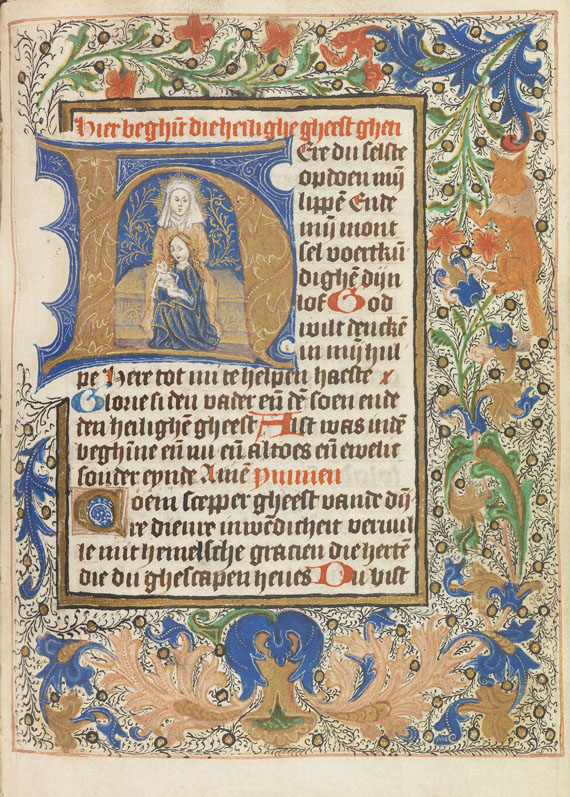 Hier beghīt die heilighe gheest ghen
HEre du selste
opdoen mijn
lippē Ende
mijn mont
sel voertkū
dighē dijn
lof God
wilt dencke
in mijn hul
pe Here tot mi te helpen haeste
Glorie si den vader eñ dē soen ende
den heilighē gheest Alst was indē
beghīne eñ nu eñ altoes eñ ewelit
sonder eynde Amē ymmen
Coem scepper gheest vande dū
re dienre inwēdicheit vervul
le mit hemelsche gracien die hertē
die du ghescapen heves Du bist